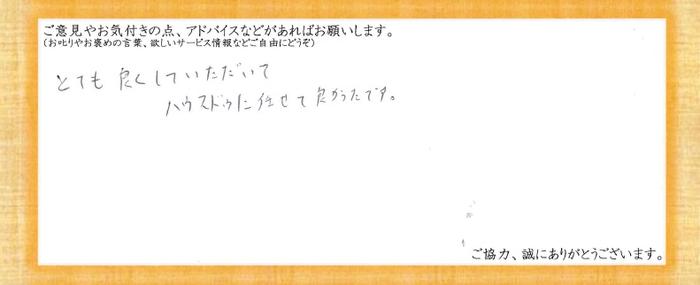 ご意見やお気付きの点、アドバイスなどがあればお願いします。
(お叱りやお褒めの言葉、欲しいサービス情報などご自由にどうぞ)
とても良くしていただいて
ハウスドゥに任せて良かったです。
ご協力、誠にありがとうございます。